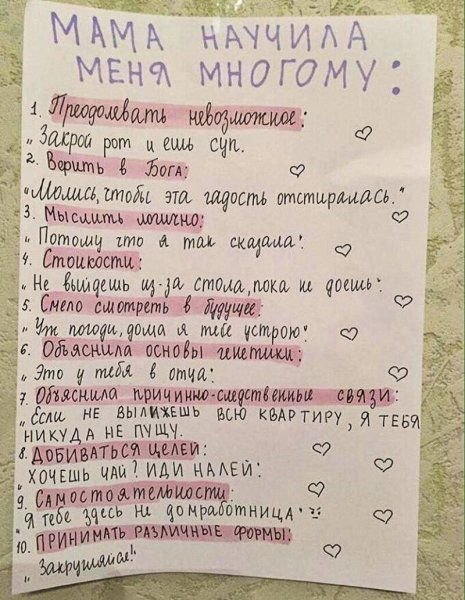 МАМА НАУЧИЛА
МЕНЯ МНОГОМУ:
1. Преодолевать невозможное:
„Закрой рот и ешь суп.
2. Верить в Бога:
„Молись, чтобы эта гадость отстиралась."
3. Мыслить логично:
„Потому что я так сказала".
4. Стойкости:
„Не выйдешь из-за стола, пока не доешь".
5. Смело смотреть в будущее:
„Уж погоди, дома я тебе устрою"
6. Объяснила основы генетики:
„Это у тебя в отца".
7. Объяснила причинно-следственные связи:
„Если НЕ ВЫЛИЖЕШЬ ВСЮ КВАРТИРУ, Я ТЕБЯ
НИКУДА НЕ ПУЩУ.
8. ДОБИВАТЬСЯ ЦЕЛЕЙ:
„ХОЧЕШЬ ЧАЙ? ИДИ НАЛЕЙ".
9. САМОСТОЯТЕЛЬНОСТИ:
„Я тебе здесь не домработница"
10. ПРИНИМАТЬ РАЗЛИЧНЫЕ ФОРМЫ:
„Закругляйся!"